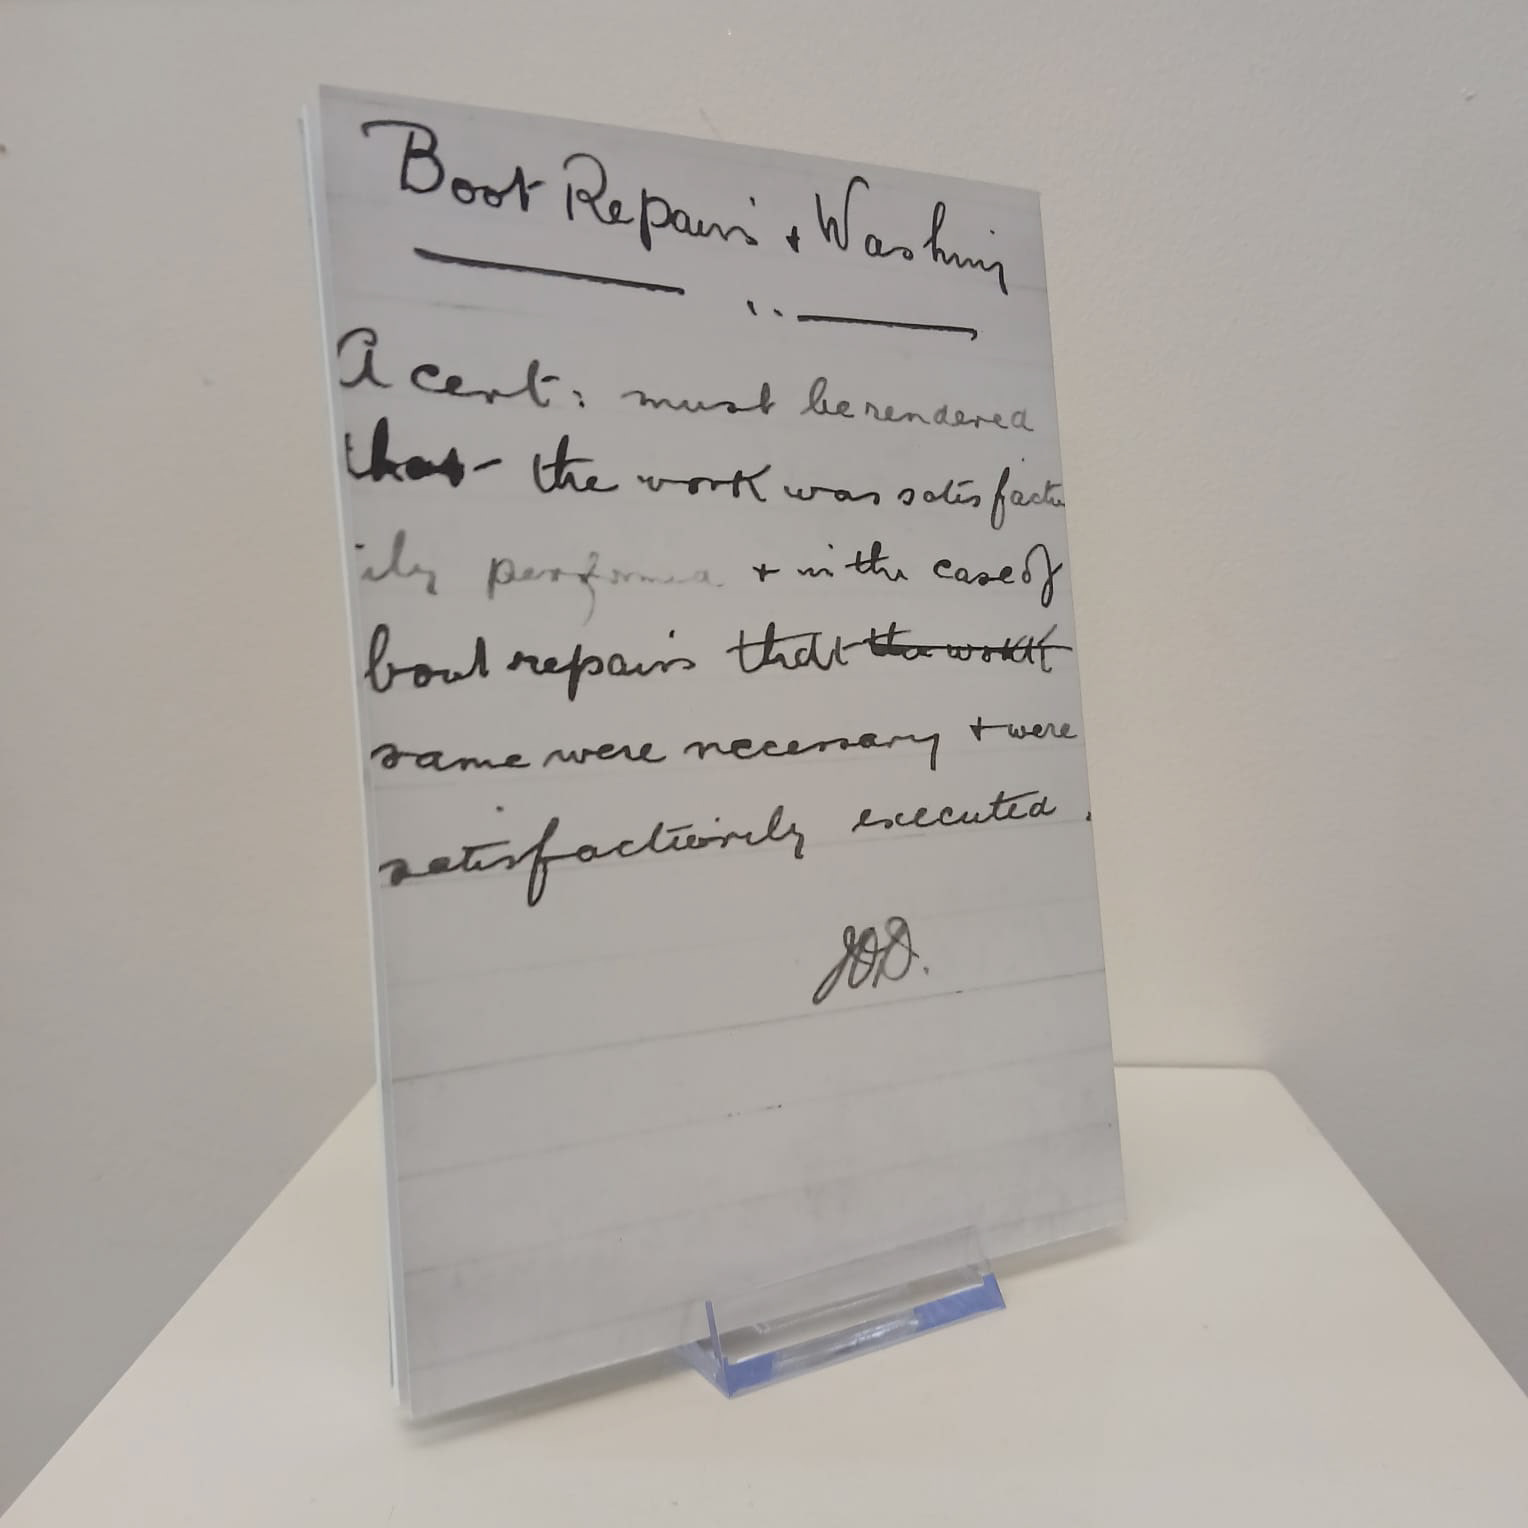 Boot Repairs + Washing
A cert: must be rendered
that the work was satisfactor
ily performed + in the case of
boot repairs that the work
same were necessary + were
satisfactorily executed.
JOD.